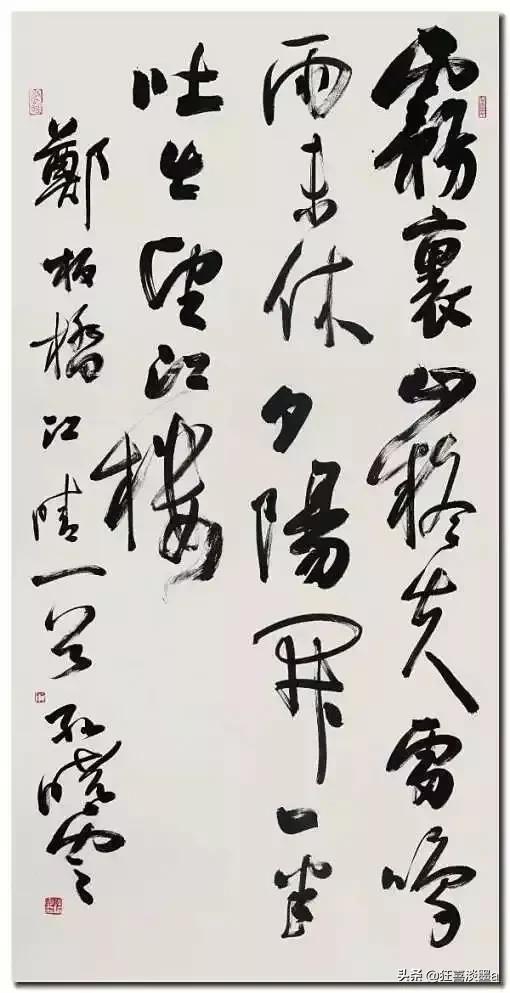 霧裏山疑失雷鳴
雨未休夕陽開一半
吐出望江樓
鄭板橋江晴一首 孫曉雲
头条 @狂喜淡墨a